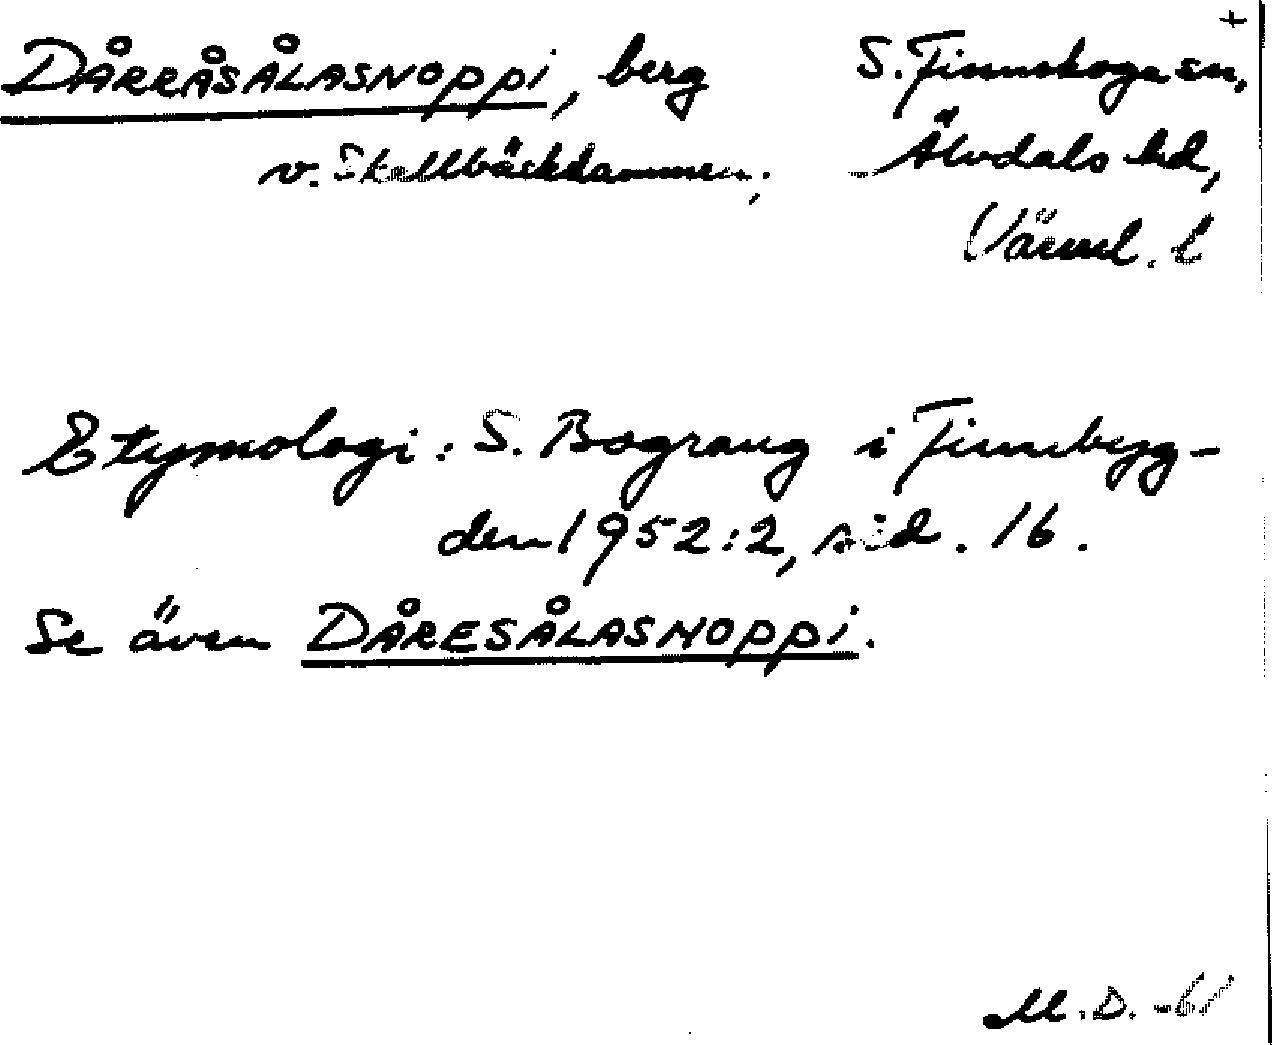 +
DÅRRÅSÅLASNOPPI, berg S. Finnskoga sn,
v. Skallbäckdammen, Älvdals hd,
Värml. l
Etymologi: S. Bograng i Finnebyg-
den 1952:2, sid. 16.
Se även DÅRESÅLASNOPPI.
M.D. -61